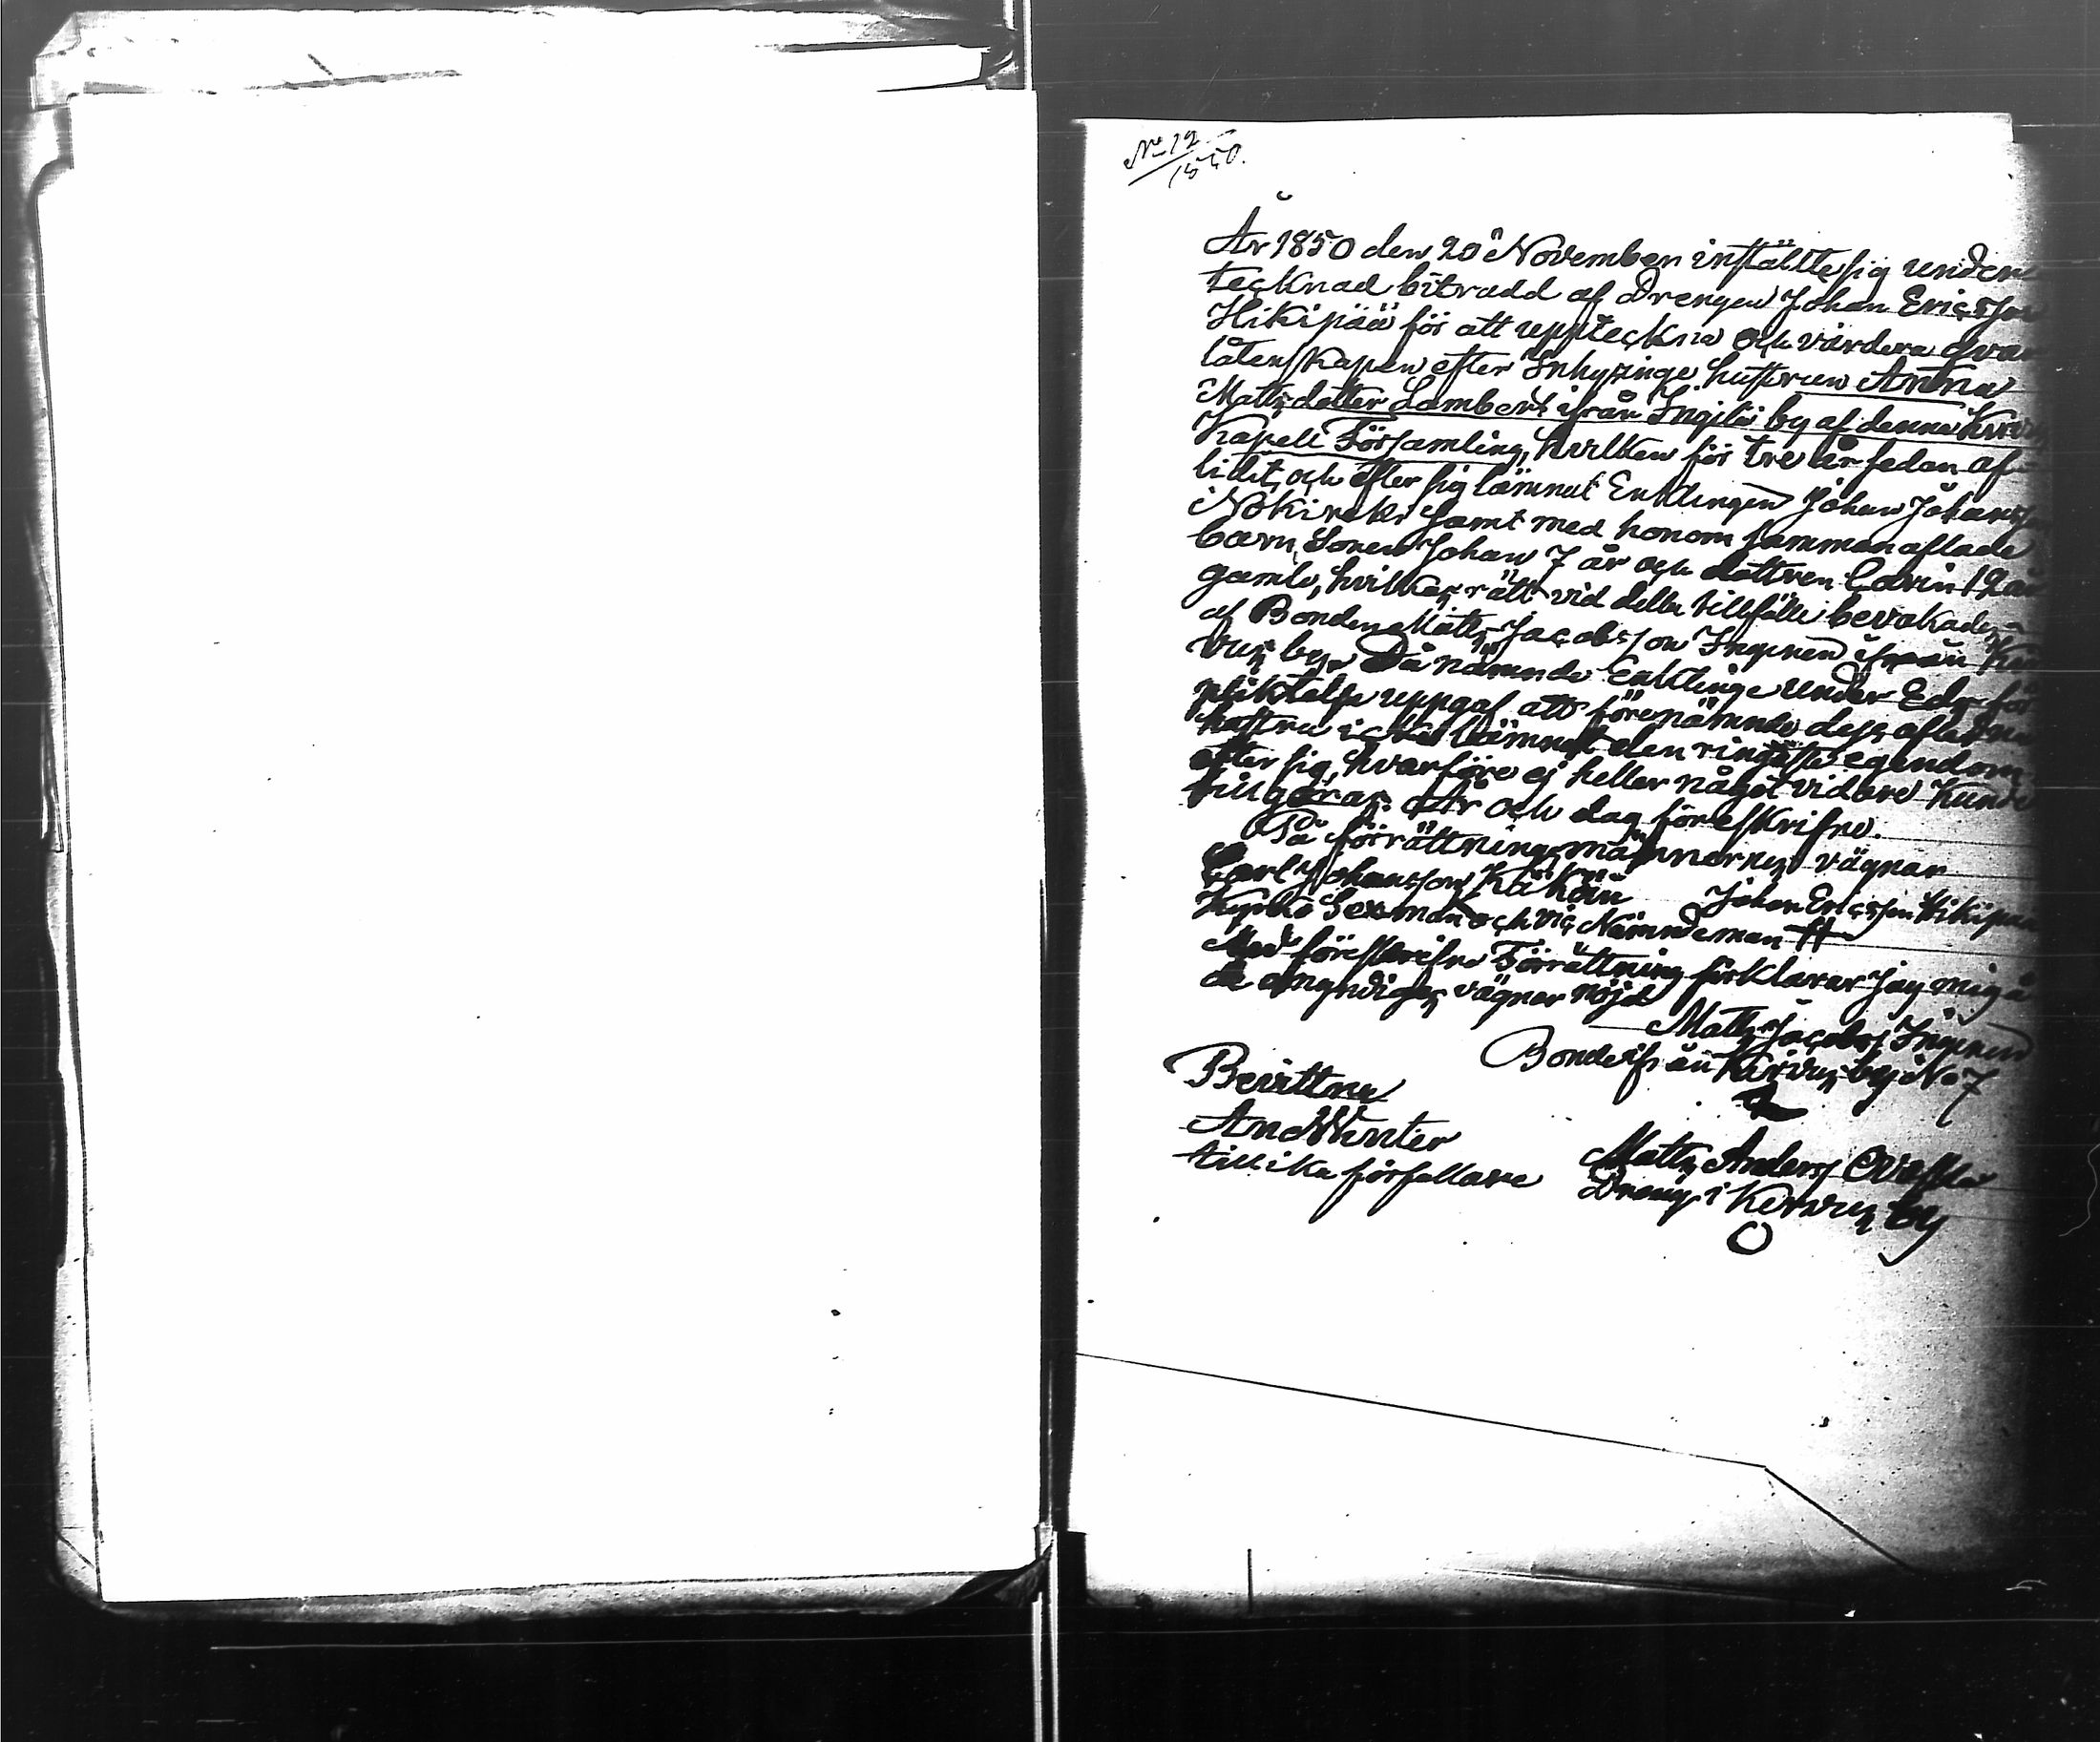 No 12
1850.
År 1850 den 20 November inställte sig under
tecknad biträdd af Drengen Johan Ericsson
Hikipää för att uppteckna och värdera qvar
låtenskapen efter Inhyzinge hustrun Anna
Mattsdotter Lambert ifrån Ingilä by af denna
Kapell Församling, hvilken för tre år sedan af-
lidit, och efter sig lämnat Enklingen Johan Johansson
Nokireki samt med honom samman aflade
barn, Sonen Johan 7 år och dottren Carin 12 år
gamle, hvilkas rätt vid detta tillfälle bevakades
af Bonden Matts Jacobsson Inginen ifrån
vus by. Då nämnde Enklinge under Eds för
pliktelse uppgaf att förenämnde dess aflidna
hustru icke lämnat den ringaste egendom
efter sig, hvarföre ej heller något vidare kunde
tillgöras. År och dag föreskrifne.
På förrättningsmännernes vägnar
Carl Johansson Kähäri Johan Ericsson Hikipää
Kyrko Sexman och vic Nämndeman
Med föreskrifne Förrättning förklarar jag mig å
de omyndigas vägnar nöjd
Matts Jacobss Inginen
Bonde ifrån Kirvus by No 7
Bevittna
And Winter
tillika författare
Matts Anderss
Dreng i Kervus by